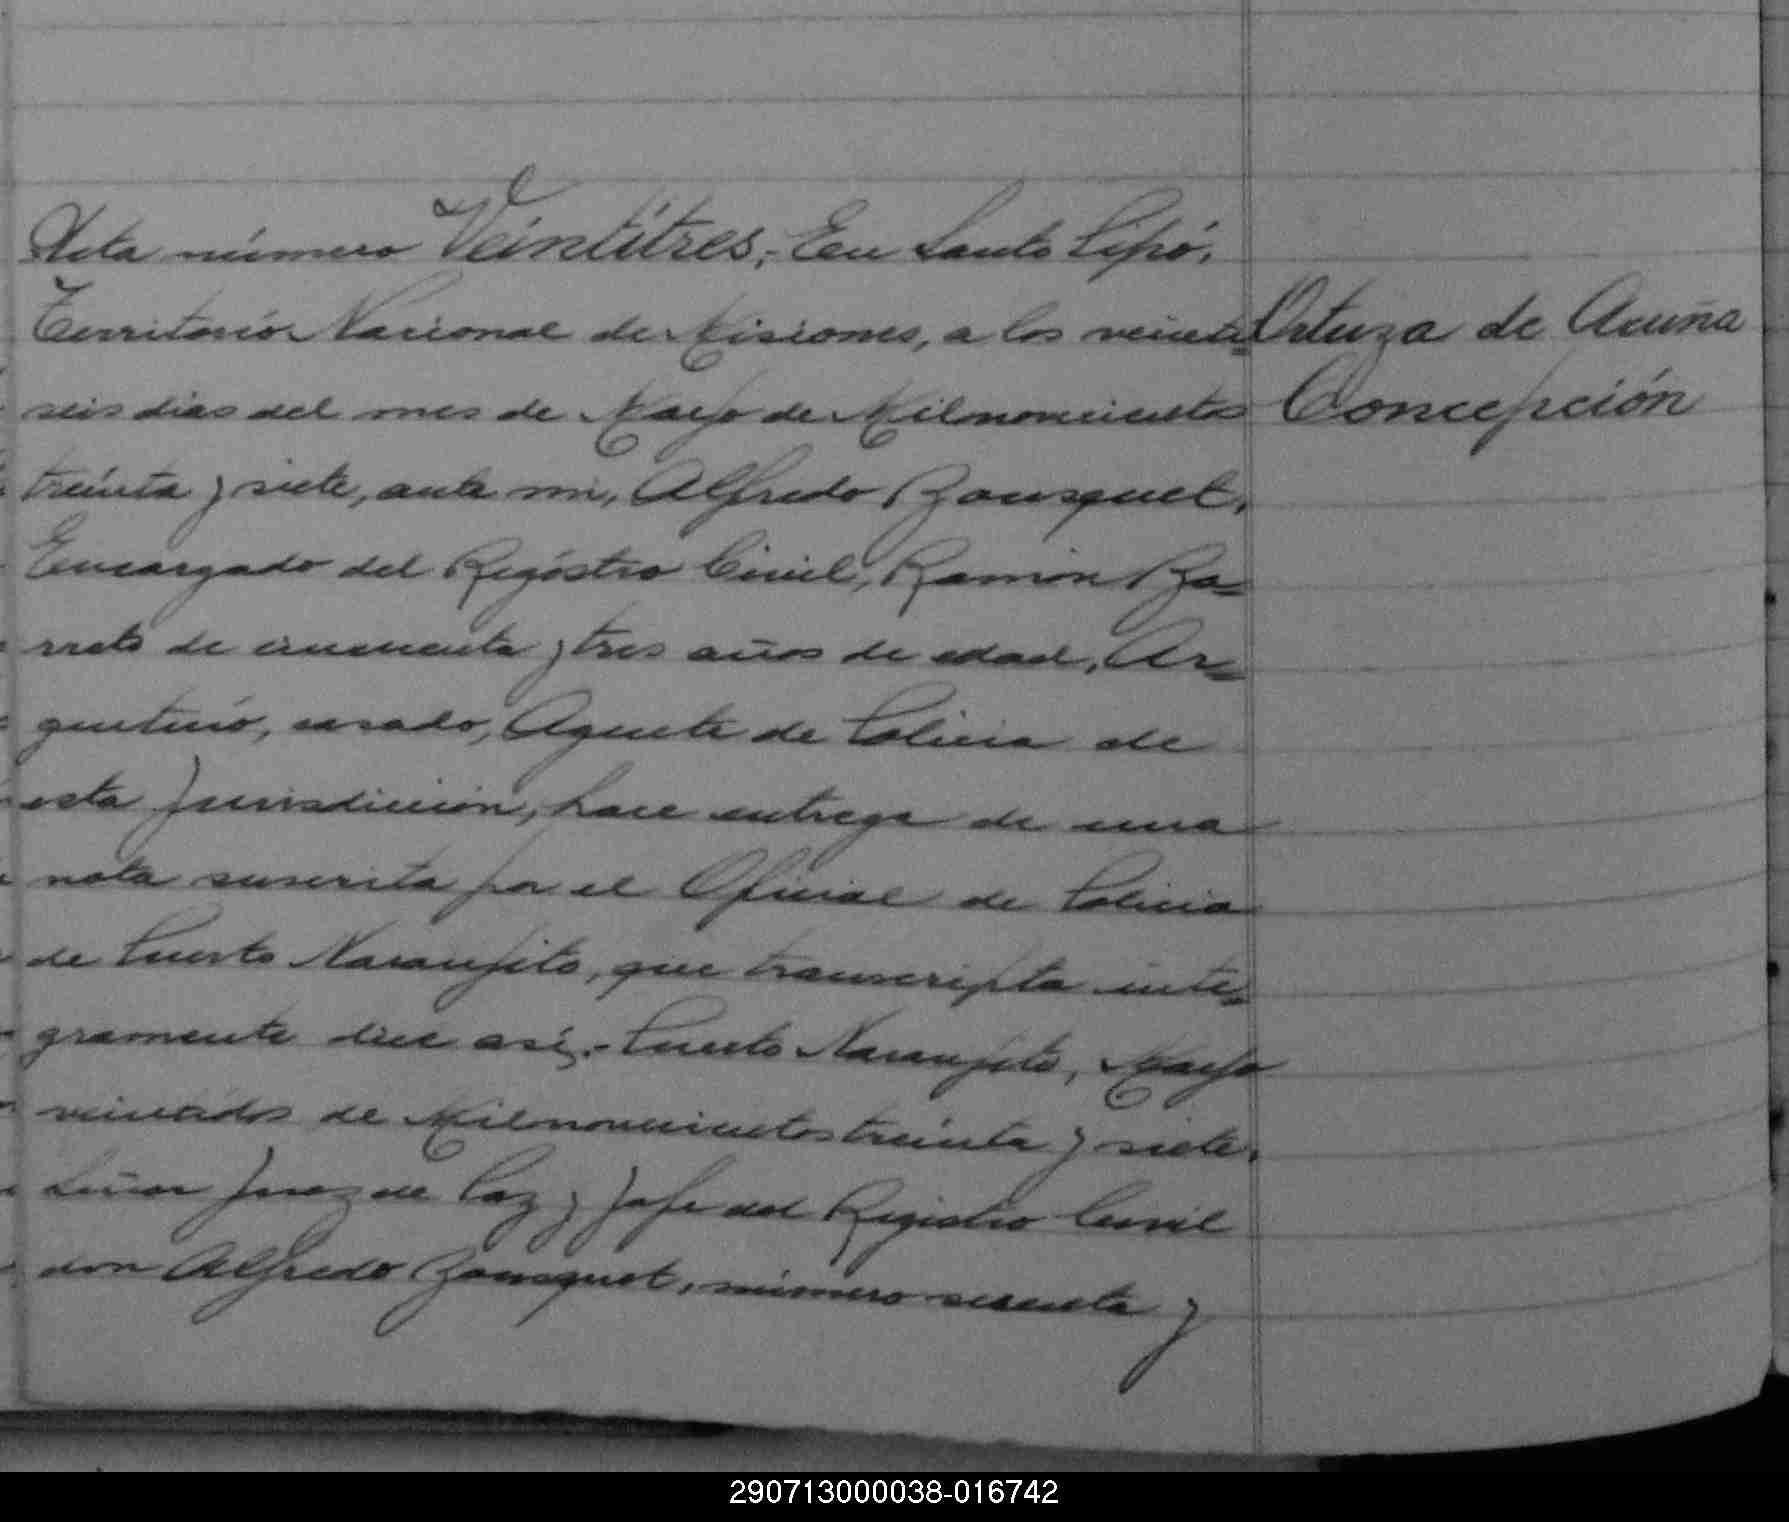 Acta número Veintitres;- En Santo Pipó,
Territorio Nacional de Misiones, a los veinti=
Ortuza de Acuña
seis dias del mes de Mayo de Milnovecientos
Concepción
treinta y siete, ante mi, Alfredo Bousquet,
Encargado del Registro Civil, Ramón Ba=
rreto de cincuenta y tres años de edad, Ar=
gentino, casado, Agente de Policia de
esta Jurisdicción, hace entrega de una
nota suscrita por el Oficial de Policia
de Puerto Naranjito, que transcripta inte=
gramente dice así;- Puerto Naranjito, Mayo
veintidos de Milnovecientos treinta y siete.
Señor Juez de Paz y Jefe del Registro Civil
don Alfredo Bousquet, número sesenta y
290713000038-016742